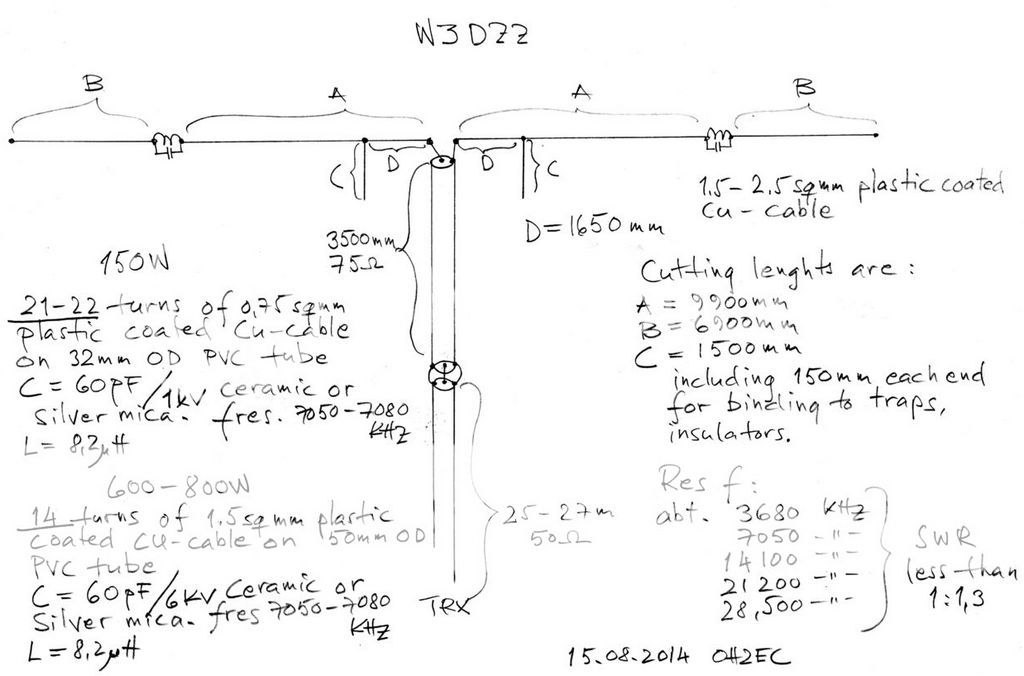 W3DZZ
B
A
A
B
C
D
D
C
3500mm
75Ω
D=1650mm
1,5-2,5sqmm plastic coated
Cu-cable
150W
21-22 turns of 0,75sqmm
plastic coated Cu-cable
on 32mm OD PVC tube
C = 60pF/1kV ceramic or
silver mica. fres. 7050-7080
KHZ
L= 8,2µH
600-800W
14 turns of 1.5sqmm plastic
coated Cu-cable on 50mm OD
PVC tube
C = 60pF/6kV Ceramic or
Silver mica. fres 7050-7080
KHZ
L= 8,2µH
25-27m
50Ω
TRX
Cutting lenghts are:
A = 9900mm
B = 6900mm
C = 1500mm
including 150mm each end
for binding to traps,
insulators.
Res f:
abt. 3680 KHZ
7050 -"-
14100 -"-
21200 -"-
28,500 -"-
SWR
less than
1:1,3
15.08.2014 OH2EC